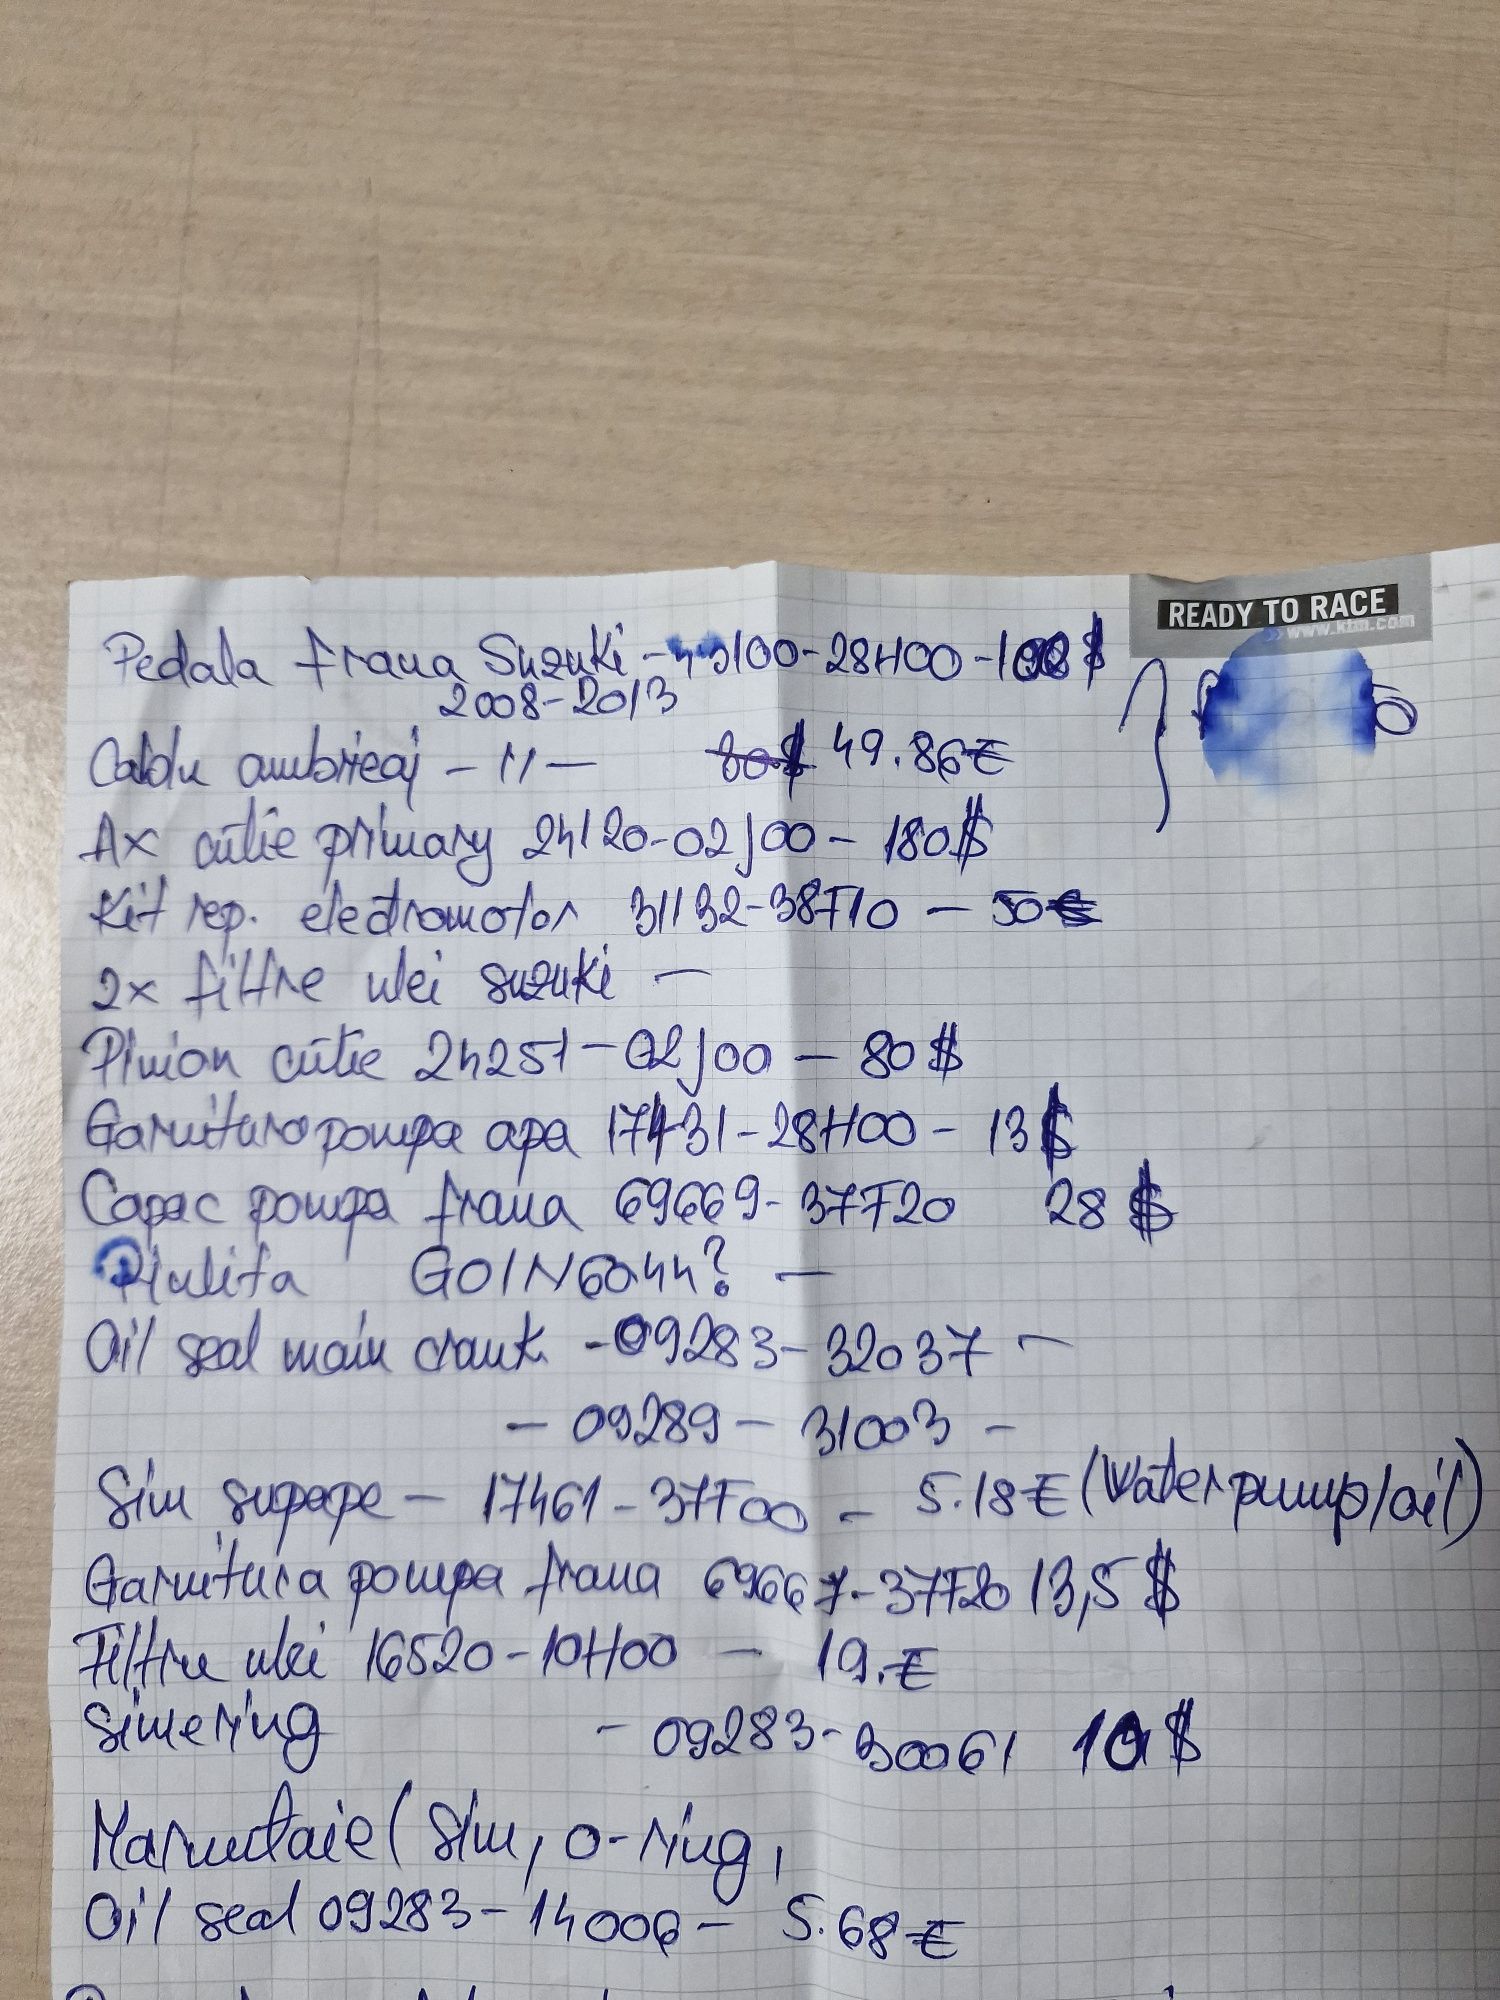 READY TO RACE
www.ktm.com
Pedala frana Suzuki - 43100-28H00 - $
2008-2013
Cablu ambrieaj - 11 - 80$ 49.86€
Ax cutie primary 24120-02J00 - 180$
Kit rep. electromotor 31132-38F10 - 50€
2x filtre ulei suzuki -
Pinion cutie 24251-02J00 - 80$
Garnitura pompa apa 17431-28H00 - 13$
Capac pompa frana 69669-37F20 28$
Piulita GOIN6044? -
Oil seal main crank - 09283-32037 -
- 09289 - 31003 -
Sim supape - 17461-37F00 - 5.18€ (Water pump/oil)
Garnitura pompa frana 69667-37F20 13,5$
Filtru ulei 16520-10H00 - 19.€
Simering - 09283-30061 10$
Maruntaie (Sim, o-ring,
Oil seal 09283-14006 - 5.68€